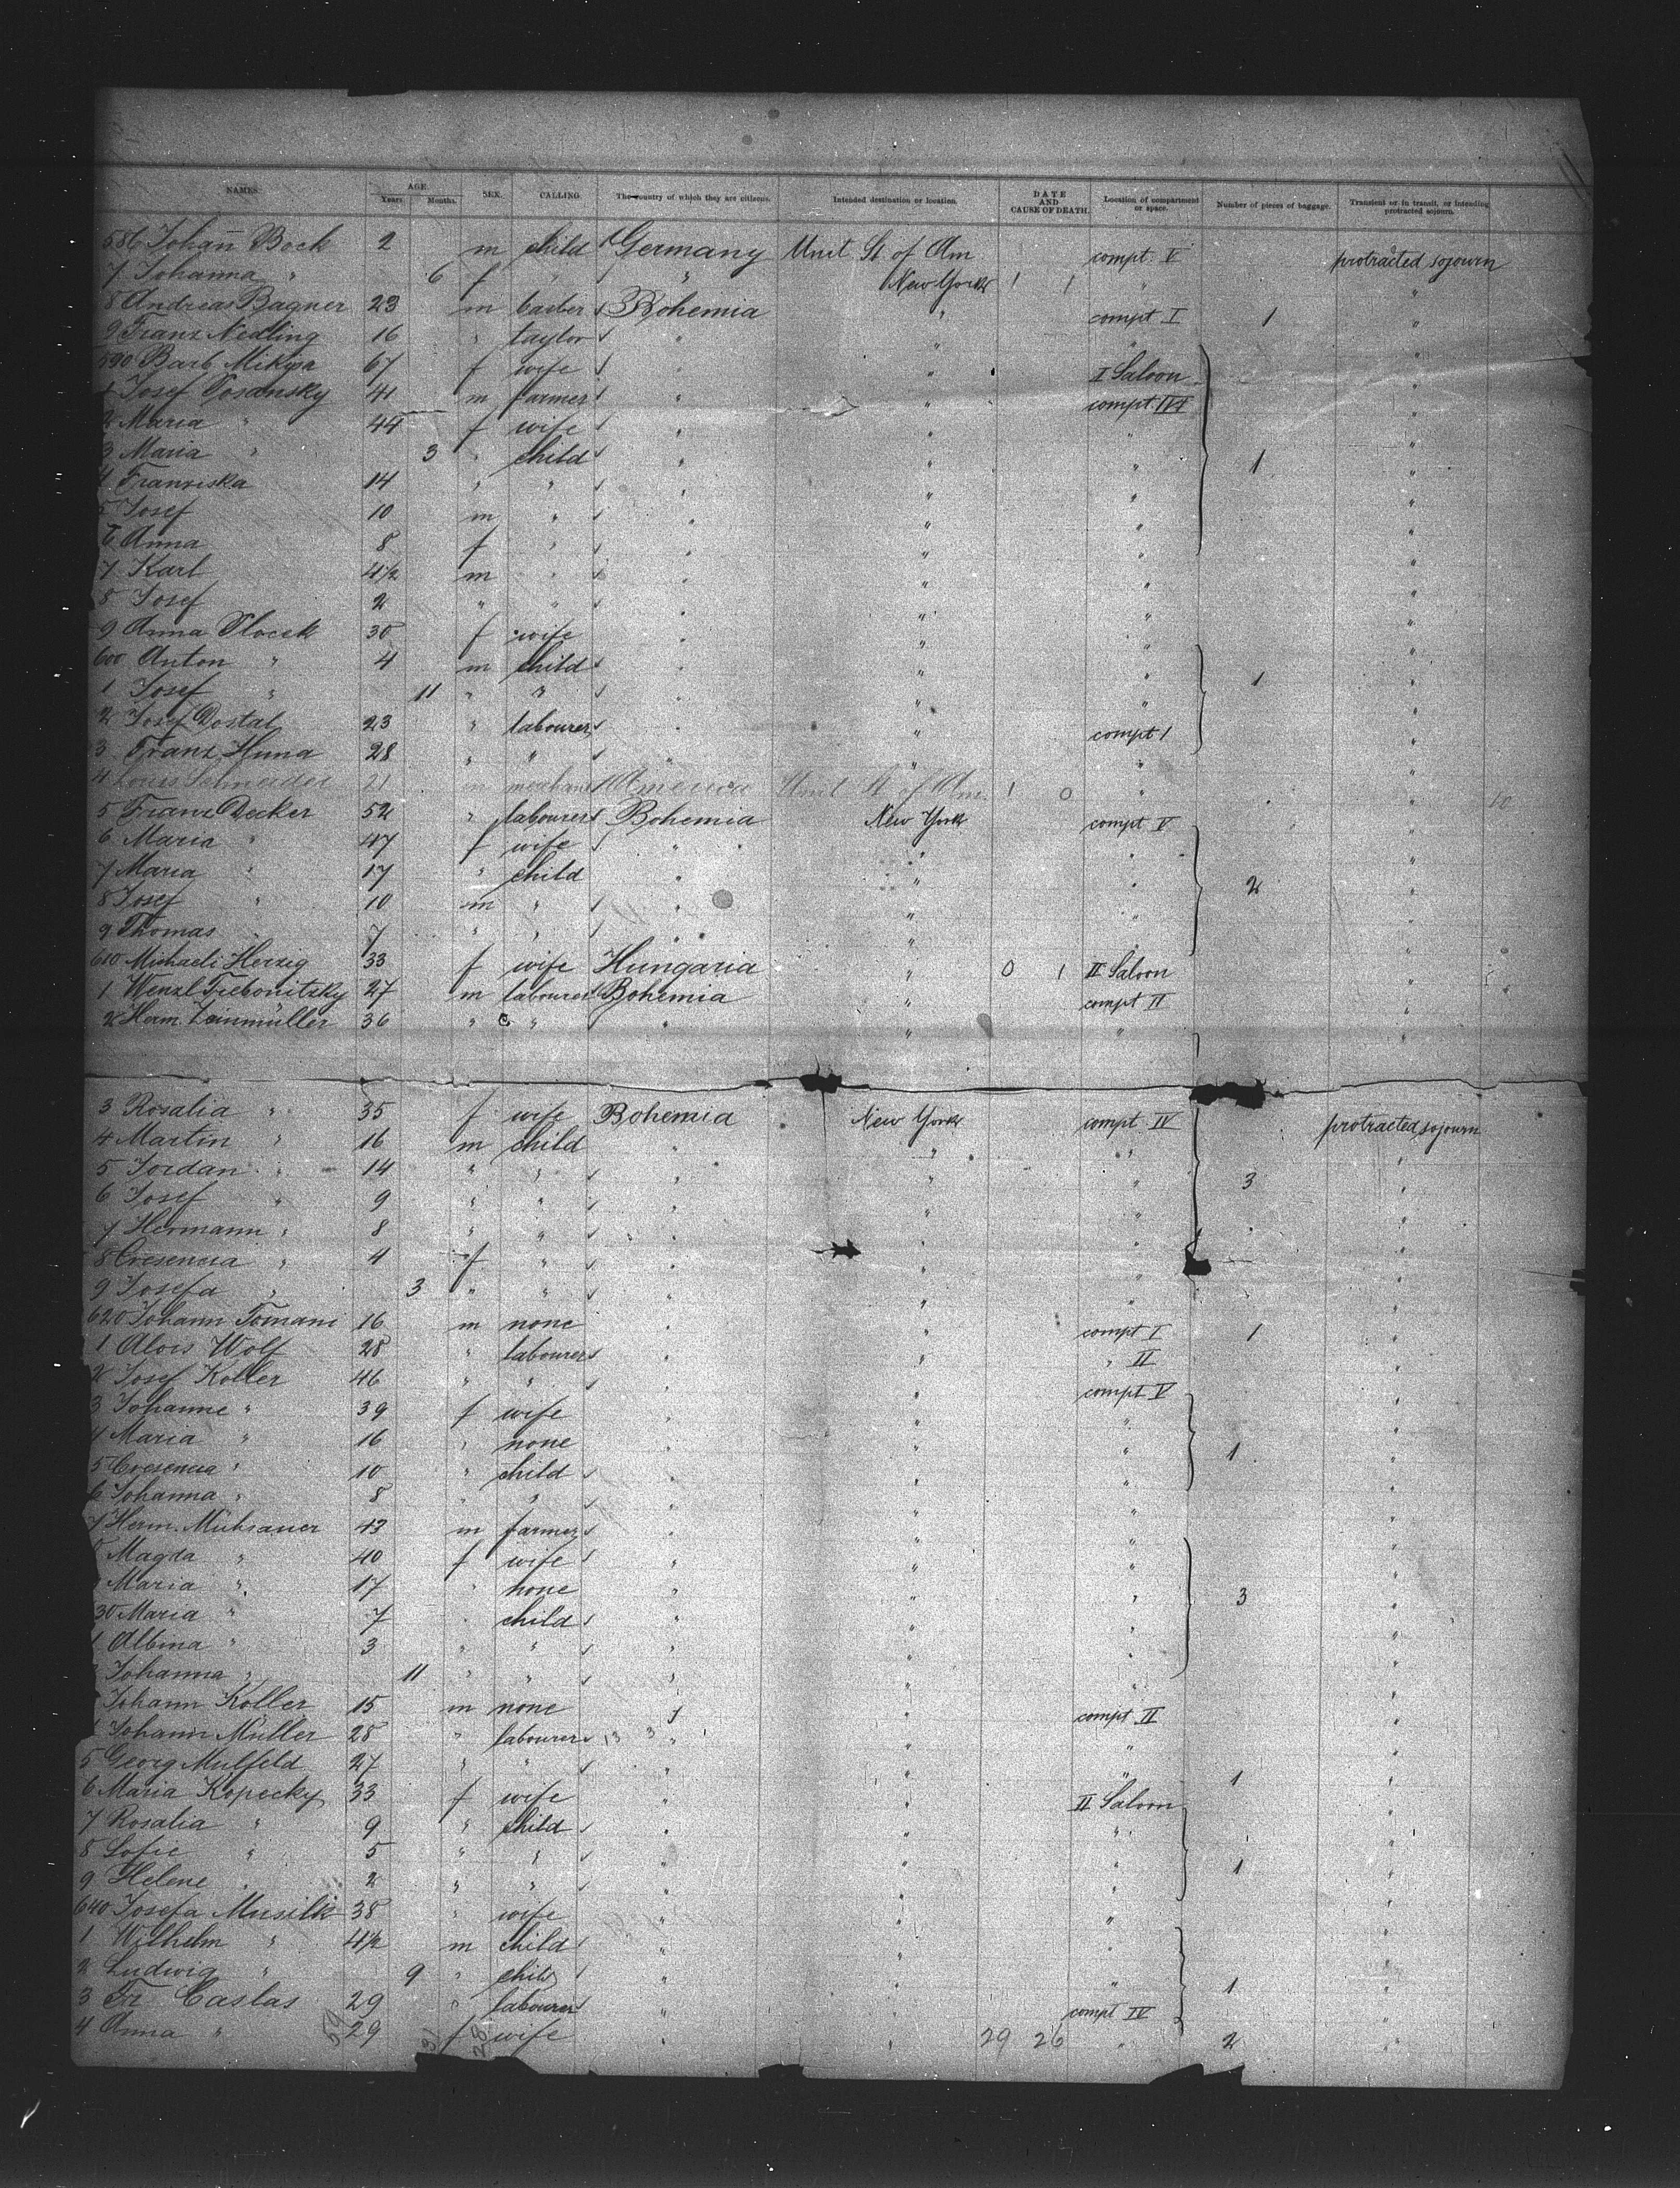 NAMES. AGE. Years. Months. SEX. CALLING. The country of which they are citizens. Intended destination or location. DATE AND CAUSE OF DEATH. Location of compartment or space. Number of pieces of baggage. Transient or in transit, or intending protracted sojourn.
586 Johañ Bock 2 m child Germany Unit St of Am compt V protracted sojourn
7 Johanna " 6 f " " New York 1 1 " "
8 Andreas Bagner 23 m barber Bohemia " compt I 1 "
9 Franz Nedling 16 " taylor " " " "
590 Barb. Mikysa 67 f wife " " I Saloon "
1 Josef Posansky 41 m farmer " " compt. IV "
2 Maria " 44 f wife " " " "
3 Maria " 3 " child " " " 1 "
4 Franziska 14 " " " " " "
5 Josef 10 m " " " " "
6 Anna 8 f " " " " "
7 Karl 4½ m " " " " "
8 Josef 2 " " " " " "
9 Anna Plocek 30 f wife " " " "
600 Anton " 4 m child " " " "
1 Josef " 11 " " " " " 1 "
2 Josef Dostal 23 " labourer " " compt I "
3 Franz Huna 28 " " " " " "
4 Louis Schneider 21 m merchant America Unit St of Am. 1 0 " "
5 Franz Decker 52 " labourer Bohemia New York compt V "
6 Maria " 47 f wife " " " "
7 Maria " 17 " child " " " 2 "
8 Josef " 10 m " " " " "
9 Thomas " 7 " " " " " "
610 Michaeli Herzig 33 f wife Hungaria " 0 1 II Saloon "
1 Wenzl Trebonitzky 27 m labourer Bohemia " compt II "
2 Herm. Leinmüller 36 " " " " " "
3 Rosalia " 35 f wife Bohemia New York compt IV protracted sojourn
4 Martin " 16 m child " " " "
5 Jordan " 14 " " " " " 3 "
6 Josef " 9 " " " " " "
7 Hermann " 8 " " " " " "
8 Cresencia " 4 f " " " " "
9 Josefa " 3 " " " " " "
620 Johann Tomani 16 m none " " compt I 1 "
1 Alois Wolf 28 " labourer " " " II "
2 Josef Koller 46 " " " " compt V "
3 Johanne " 39 f wife " " " "
4 Maria " 16 " none " " " 1 "
5 Cresencia " 10 " child " " " "
6 Johanna " 8 " " " " " "
7 Herm. Mühsauer 43 m farmer " " " "
Magda " 40 f wife " " " "
Maria " 17 " none " " " 3 "
30 Maria " 7 " child " " " "
1 Albina " 3 " " " " " "
Johanna " 11 " " " " " "
Johann Koller 15 m none " " compt II "
Johann Müller 28 " labourer 13 3 " " " "
5 Georg Mulfeld 27 " " " " " 1 "
6 Maria Kopecky 33 f wife " " II Saloon "
7 Rosalia " 9 " child " " " "
8 Sofie " 5 " " " " " 1 "
9 Helene " 2 " " " " " "
640 Josefa Musilik 38 " wife " " " "
1 Wilhelm " 4½ m child " " " "
2 Ludwig " 9 " child " " " 1 "
3 Fr Caslas 29 " labourer " " compt IV "
4 Anna " 59 29 31 f 28 wife " " 29 26 " 2 "